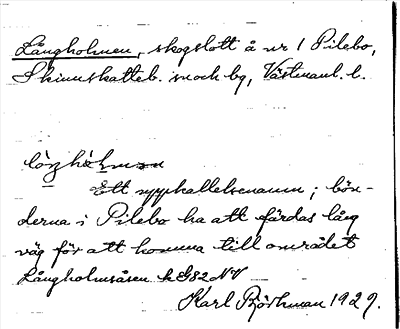 Långholmen, skogslott å nr 1 Pilebo,
Skinnskatteb. snock bg, Västmanl. l.
lòŋhòlman
Ett uppkallelsenamn; bön-
derna i Pilebo ha att färdas lång
väg för att komma till området
Långholmsåsen k G82 NV
Karl Björkman 1929.